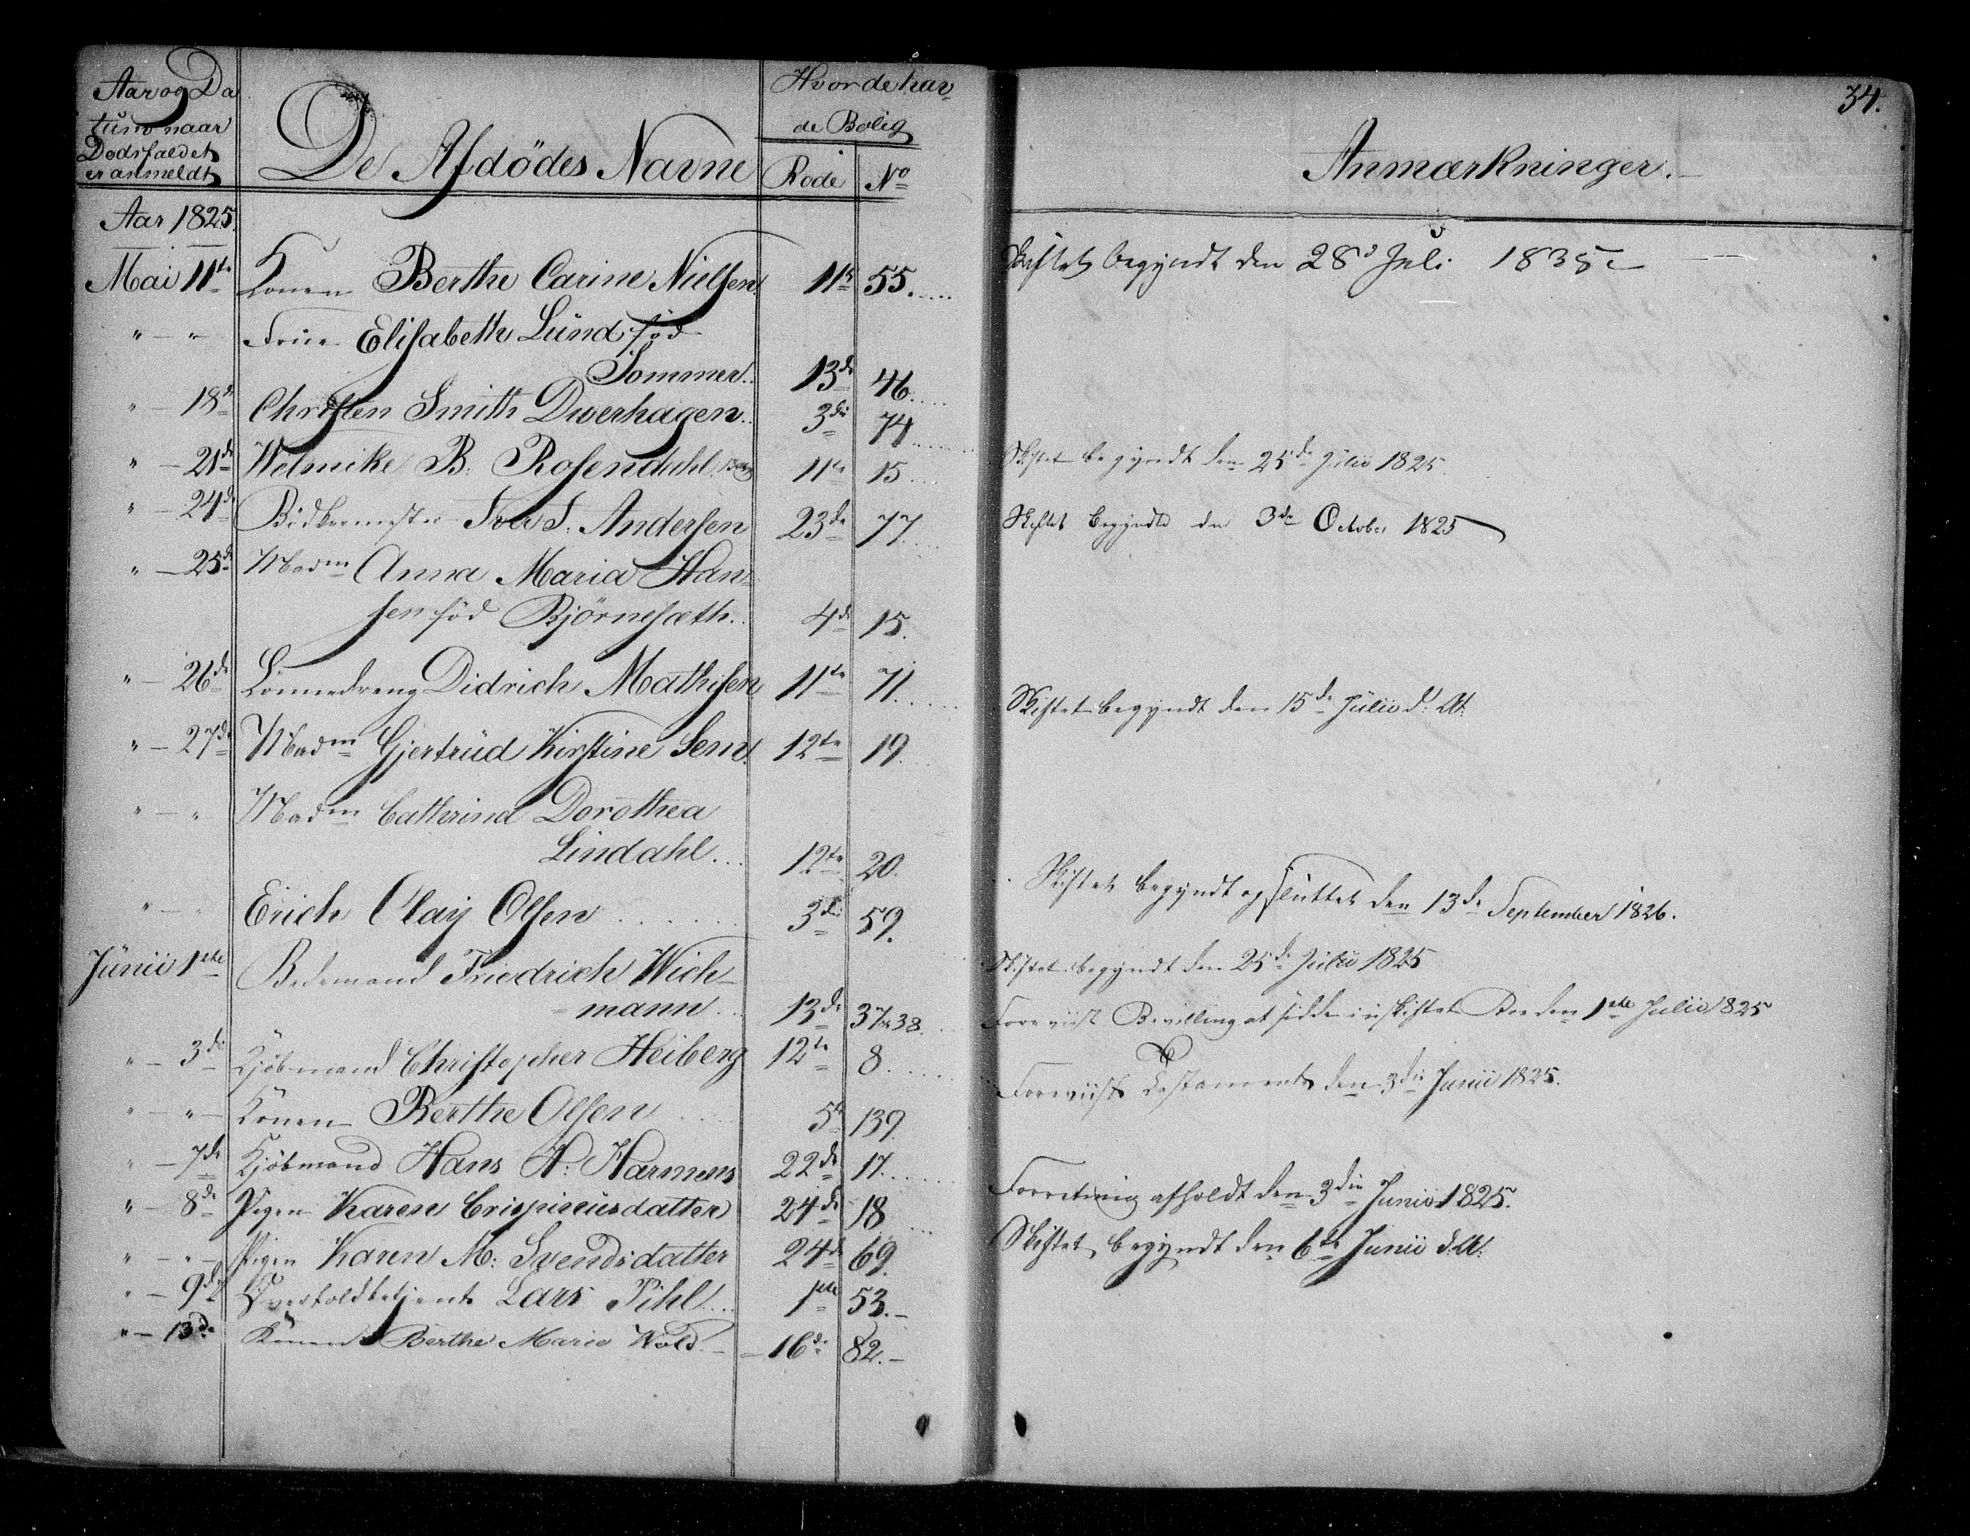 34.
Aar og Da
tum naar
Dødsfaldet
er anmeldt
De Afdödes Navne
Hvor de hav
de Bolig
Rode No
Anmærkninger.
Aar 1825.
Mai 11te Konen Berthe Carine Nielsen 11te 55. Skiftet begyndt den 28d Juli 1835
" — " Frue Elisabeth Lund fød
Sommer 13de 46.
" — 18de Christen Smith Dwerhagen 3die 74
" — 21de Welmike B: Rosendahl 11te 15 Skiftet begyndt den 25de Julii 1825.
" — 24de Bödkermester Iver S. Andersen 23de 77 Skiftet begyndte den 3die October 1825
" — 25de Madm Anna Maria Han-
sen fød Bjørnesæth 4de 15.
" — 26de Lönnedreng Didrich Mathisen 11te 71. Skiftet begyndt den 15de Julii d: A:
" — 27de Madm Gjertrüd Kirstine Sem 12te 19.
" — " Madm Cathrina Dorothea
Lindahl 12te 20.
" — " Erich Olaij Olsen 3die 59. Skiftet begyndt og sluttet den 13de September 1826.
Junii 1ste Bedemand Friedrich Wich-
mann 13de 37 & 38. Skiftet begyndt den 25de Julii 1825
Foreviist Bevilling at sidde i uskiftet Boe den 1ste Julii 1825
" — 3die Kjöbmand Christopher Heiberg 12te 8. Foreviist Testamente den 3die Junii 1825.
" — " — Konen Berthe Olsen 5te 139.
" — 7de Kjöbmand Hans H: Harmens 22de 17.
" — 8de Pigen Karen Crispiniusdatter 24de 18 Forretning afholdt den 3die Junii 1825.
" — " — Pigen Karen M: Svendsdatter 24de 69. Skiftet begyndt den 6te Junii d: A:
" — 9de Overtoldbetjent Lars Pihl 1ste 53.—
" — 13de Konen Berthe Marie Wold 16de 82.—